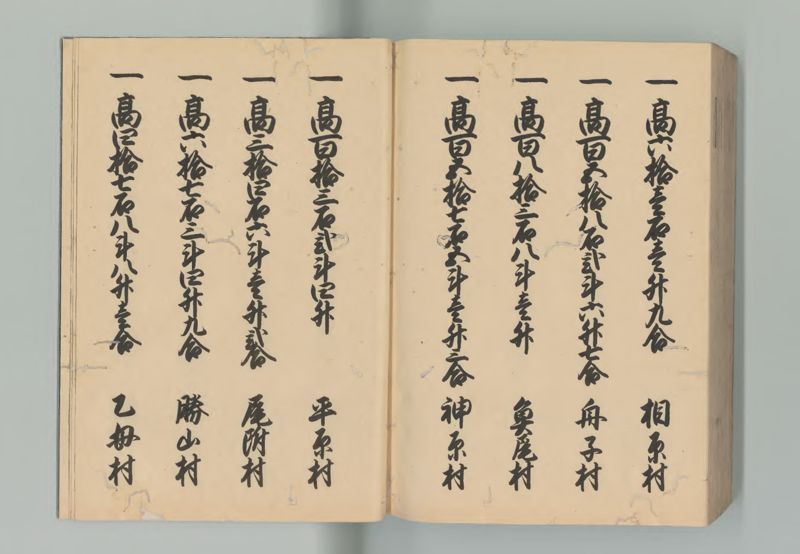 一高六拾壱石壱升九合　相原村
一高百五拾八石弐斗六升七合　舟子村
一高百八拾三石八斗壱升　奥尾村
一高百五拾七石五斗壱升三合　神原村
一高百拾三石弐斗四升　平原村
一高三拾四石六斗壱升弐合　尾附村
一高六拾七石三斗四升九合　勝山村
一高四拾七石八斗八升壱合　乙母村